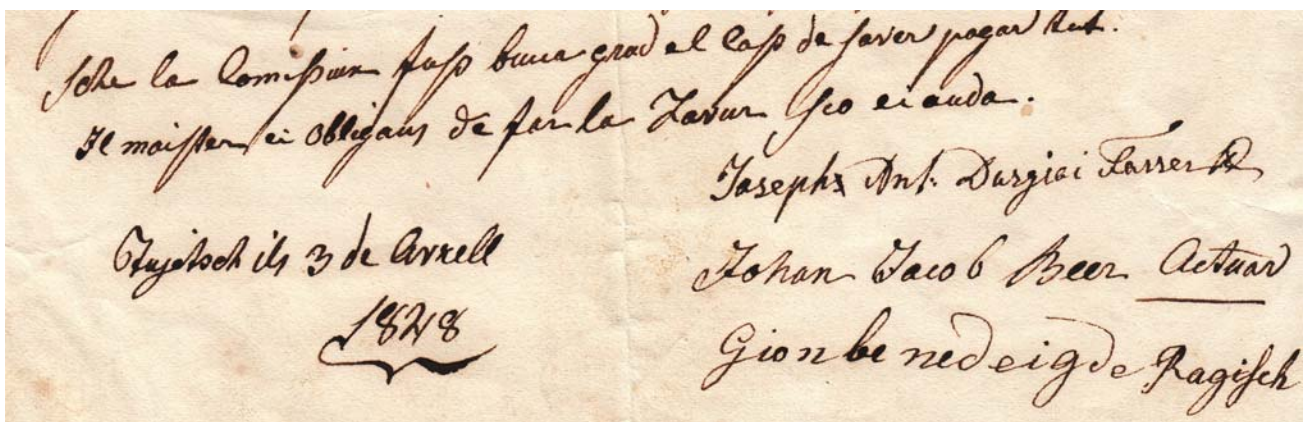 Sche la Comißiun fuß buca grad el Caß de saver pagar tut.
Il maister ei obligaus de far la Lavur sco ei auda.
Josephs Ant: Durgiai Farrer
Tujetsch ils 3 de Avrell
1828
Johan Jacob Beer Actuar
Gion benedeig de Ragisch